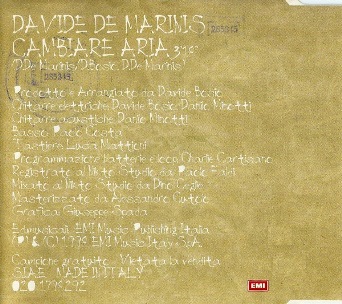 DAVIDE DE MARINIS
CAMBIARE ARIA
(D.De Marinis/D.Bosio, D.De Marinis)
Prodotto e Arrangiato da Davide Bosio
Chitarre elettriche Davide Bosio, Danilo Minotti
Chitarre acustiche Danilo Minotti
Basso Paolo Costa
Tastiere Lucio
Programmazione batterie e loop
Registrato al Studio da Paolo
Mixato al Studio da Dino
Masterizzato da Alessandro
Grafica Giuseppe Spada
Ed.musicali EMI Music Publishing Italia
(P) & (C) 1999 EMI Music Italy S.p.A.
Campione gratuito - Vietata la vendita
SIAE - MADE IN ITALY
020 1799292
EMI